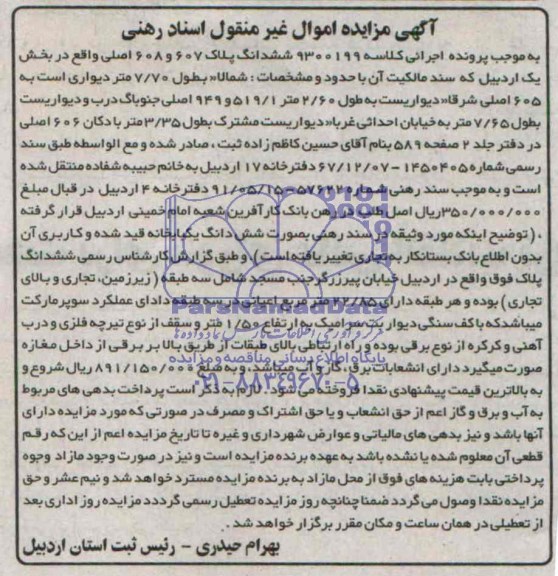 آگهی مزایده اموال غیر منقول اسناد رهنی
به موجب پرونده اجرائی کلاسه ۹۳۰۰۱۹۹ ششدانگ پلاک ۶۰۷ و ۶۰۸ اصلی واقع در بخش
یک اردبیل که سند مالکیت آن با حدود و مشخصات : شمالا» بطول ۷/۷۰ متر دیواری است به
۶۰۵ اصلی شرقا» دیواریست به طول ۲/۶۰ متر ۵۱۹/۱ و ۹۴۹ اصلی جنوباگ درب و دیواریست
بطول ۷/۶۵ متر به خیابان احداثی غربا» دیواریست مشترک بطول ۳/۳۵ متر با دکان ۶۰۶ اصلی
در دفتر جلد ۲ صفحه ۵۸۹ بنام آقای حسین کاظم زاده ثبت ، صادر شده و مع الواسطه طبق سند
رسمی شماره ۱۴۵۰۴۰۵-۶۷/۱۲/۰۷ دفترخانه ۱۷ اردبیل به خانم حبیبه شفاده منتقل شده
است و به موجب سند رهنی شماره ۵۷۶۲۲-۹۱/۰۵/۱۵ دفترخانه ۴ اردبیل در قبال مبلغ
۳۵۰/۰۰۰/۰۰۰ ریال اصل طلب در رهن بانک کارآفرین شعبه امام خمینی اردبیل قرار گرفته
، ( توضیح اینکه مورد وثیقه در سند رهنی بصورت شش دانگ یکبابخانه قید شده و کاربری آن
بدون اطلاع بانک بستانکار به تجاری تغییر یافته است ) ، و طبق گزارش کارشناس رسمی ششدانگ
پلاک فوق واقع در اردبیل خیابان پیرزرگر جنب مسجد شامل سه طبقه ( زیرزمین، تجاری و بالای
تجاری ) بوده و هر طبقه دارای ۲۲/۸۵ متر مربع اعیانی در سه طبقه دادای عملکرد سوپرمارکت
میباشد که با کف سنگی دیوار یک سرامیک به ارتفاع ۱/۵۰ متر و سقف از نوع تیرچه فلزی و درب
آهنی و کرکره از نوع برقی بوده و راه ارتباطی بالای طبقات از طریق بالابر برقی از داخل مغازه
صورت میگیرد دارای انشعابات برق ، گاز و آب میباشد، و به مبلغ ۸۹۱/۱۵۰/۰۰۰ ریال شروع و
به بالاترین قیمت پیشنهادی نقدا فروخته می شود. لازم به ذکر است پرداخت بدهی های مربوط
به آب و برق و گاز اعم از حق انشعاب و یا حق اشتراک و مصرف در صورتی که مورد مزایده دارای
آنها باشد و نیز بدهی های مالیاتی و عوارض شهرداری و غیره تا تاریخ مزایده اعم از این که رقم
قطعی آن معلوم شده یا نشده باشد به عهده برنده مزایده است و نیز در صورت وجود مازاد وجوه
پرداختی بابت هزینه های فوق از محل مازاد به برنده مزایده مسترد خواهد شد و نیم عشر و حق
مزایده نقدا وصول می گردد ضمنا چنانچه روز مزایده تعطیل رسمی گرددد مزایده روز اداری بعد
از تعطیلی در همان ساعت و مکان مقرر برگزار خواهد شد .
بهرام حیدری - رئیس ثبت استان اردبیل
ParsNamadData
پایگاه اطلاع رسانی مناقصه و مزایده
۰۲۱-۸۸۳۴۹۶۷۰-۵